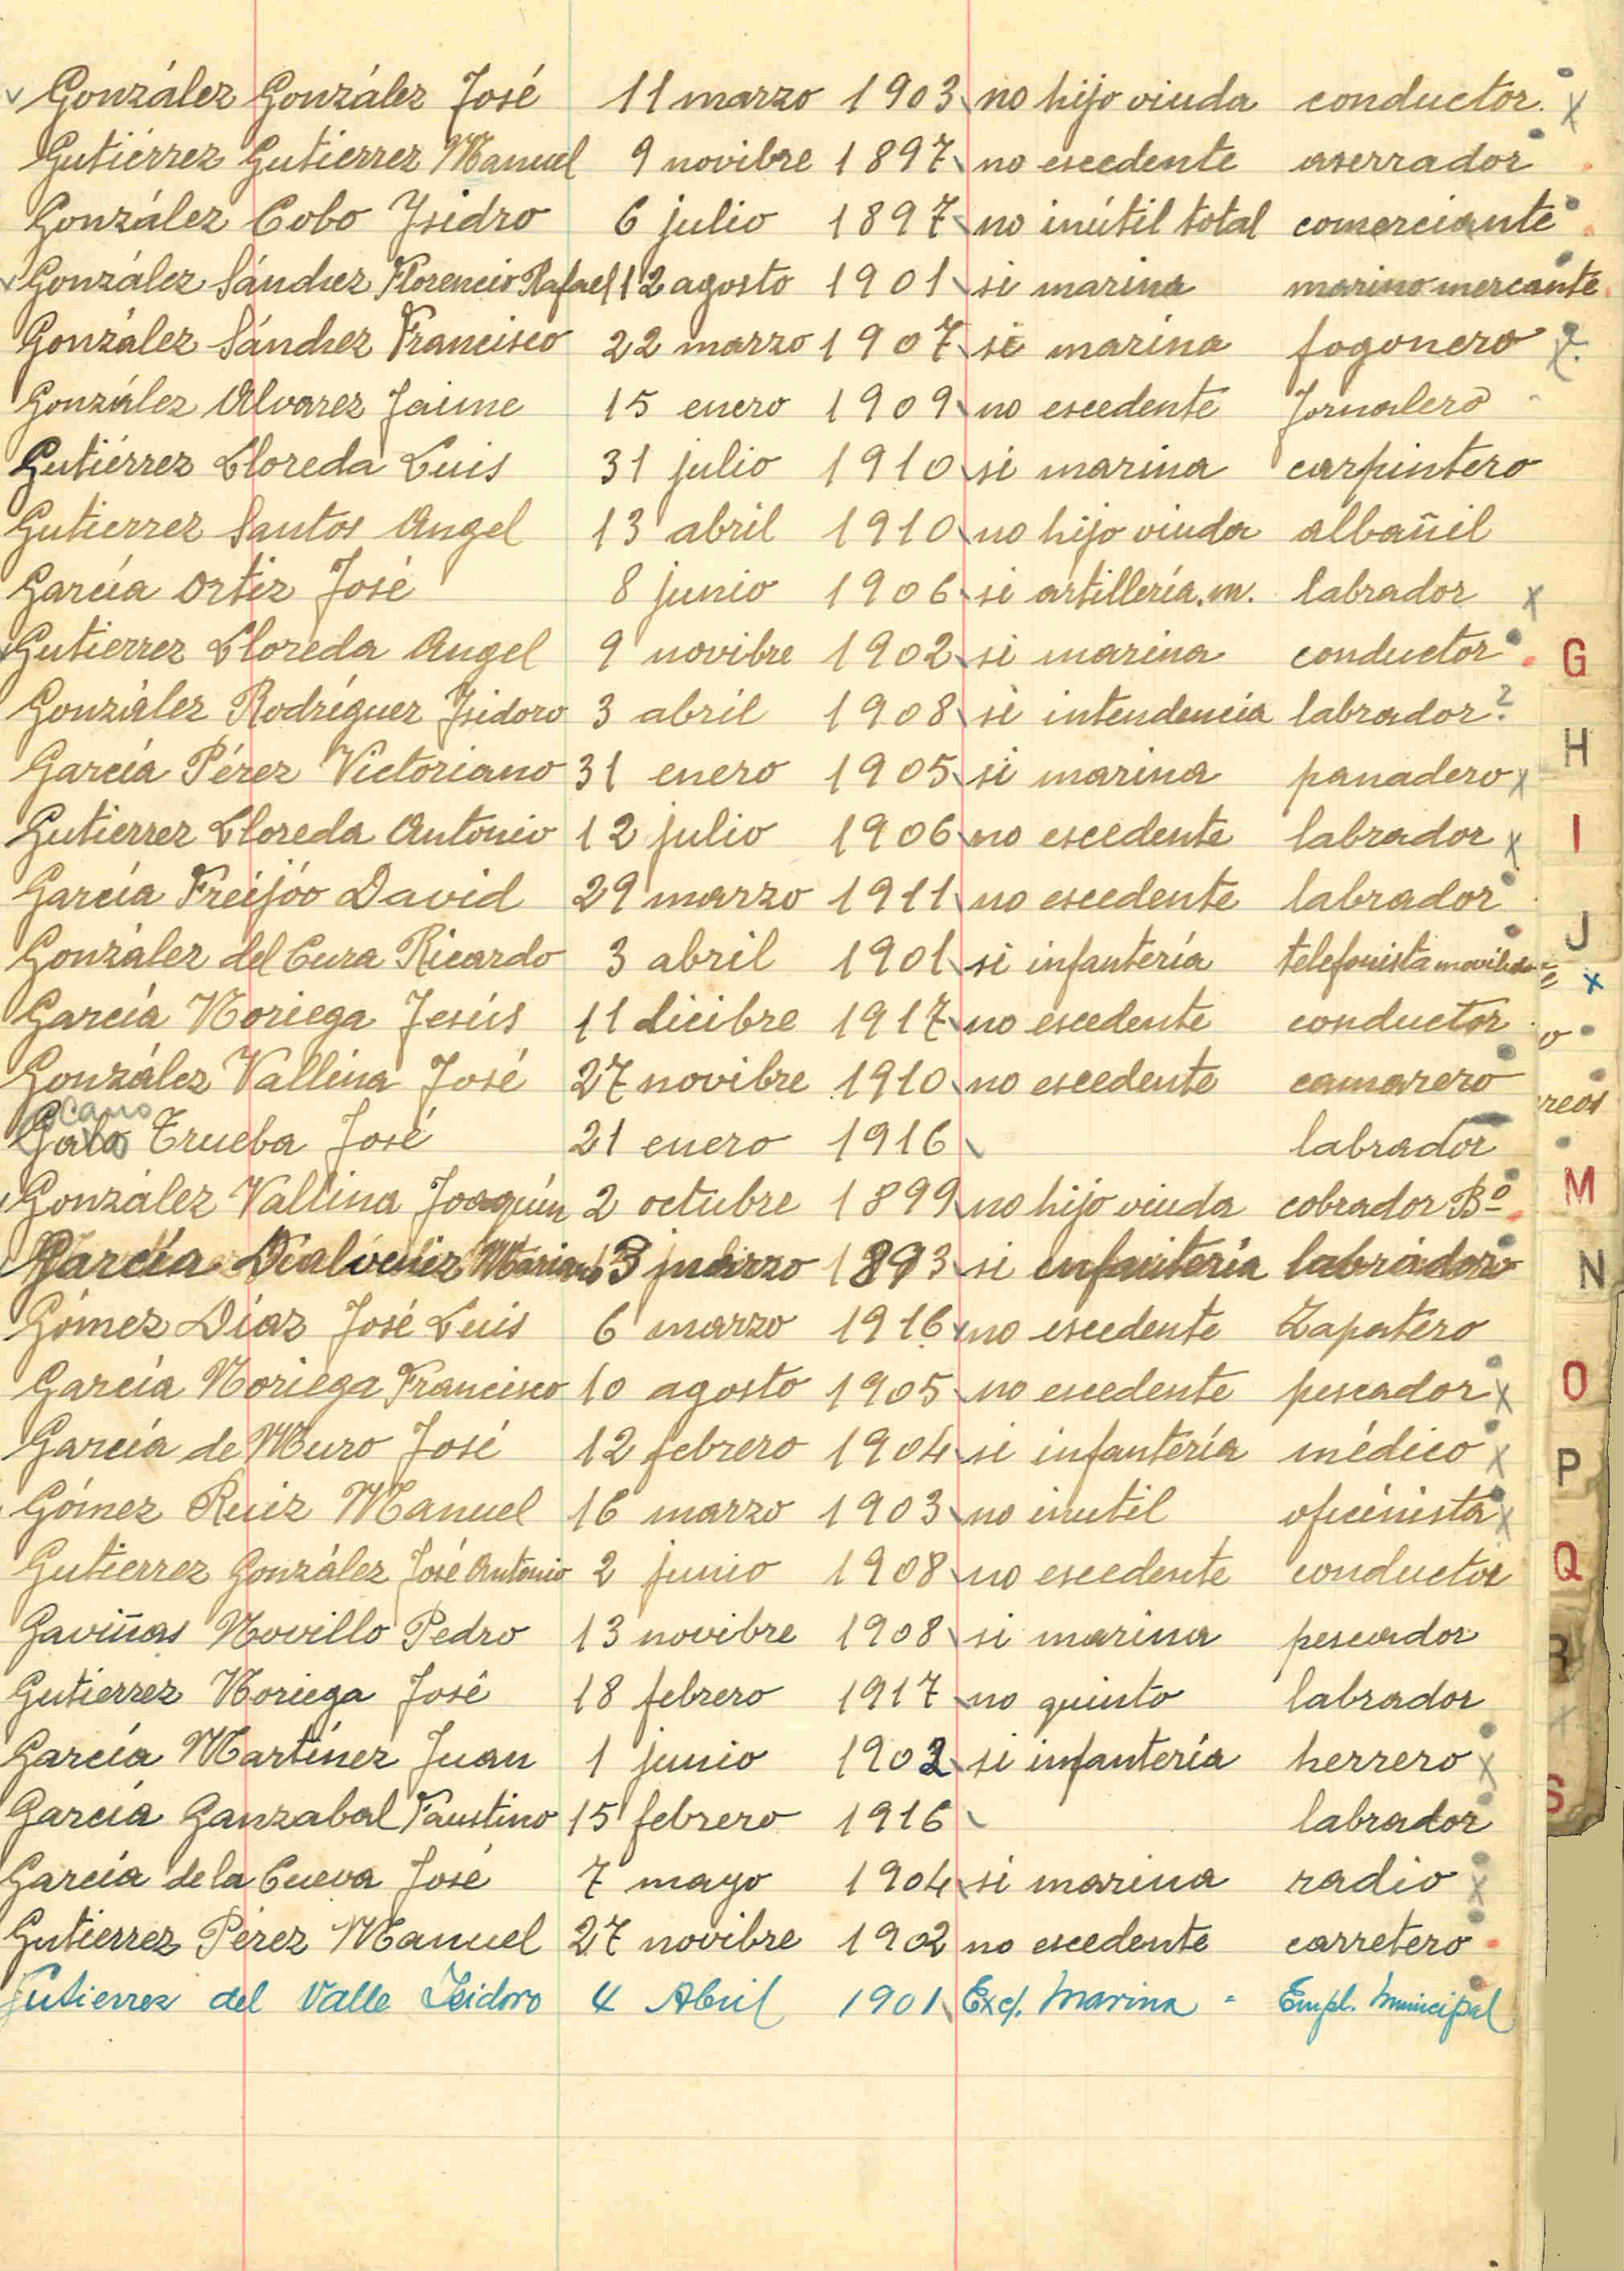 González González José 11 marzo 1903 no hijo viuda conductor. x
Gutiérrez Gutierrez Manuel 9 novibre 1897 no escedente aserrador
González Cobo Isidro 6 julio 1897 no inútil total comerciante
González Sánchez Florencio Rafael 12 agosto 1901 si marina marino mercante
González Sánchez Francisco 22 marzo 1907 si marina fogonero
González Alvarez Jaime 15 enero 1909 no escedente Jornalero
Gutiérrez Lloreda Luis 31 julio 1910 si marina carpintero
Gutierrez Santos Angel 13 abril 1910 no hijo viuda albañil
García Ortiz José 8 junio 1906 si artillería.m. labrador x
Gutierrez Lloreda Angel 9 novibre 1902 si marina conductor
G
González Rodríguez Isidoro 3 abril 1908 si intendencia labrador ?
García Pérez Victoriano 31 enero 1905 si marina panadero x
H
Gutierrez Lloreda Antonio 12 julio 1906 no escedente labrador x
I
García Freijóo David 29 marzo 1911 no escedente labrador
González del Cura Ricardo 3 abril 1901 si infantería telefonista
J
x
García Noriega Jesús 11 dicibre 1917 no escedente conductor
González Vallina José 27 novibre 1910 no escedente camarero
reos
Cano
Trueba José 21 enero 1916 labrador
González Vallina Joaquín 2 octubre 1899 no hijo viuda cobrador Bº
M
García 3 marzo 1893 si infantería labrador
N
Gómez Díaz José Luis 6 marzo 1916 no escedente Zapatero
García Noriega Francisco 10 agosto 1905 no escedente pescador x
O
García de Muro José 12 febrero 1904 si infantería médico x
P
Gómez Ruiz Manuel 16 marzo 1903 no inutil oficinista x
Gutierrez González José Antonio 2 junio 1908 no escedente conductor
Q
Gaviñas Novillo Pedro 13 novibre 1908 si marina pescador
R
Gutierrez Noriega José 18 febrero 1917 no quinto labrador
García Martínez Juan 1 junio 1902 si infantería herrero x
S
García Ganzabal Faustino 15 febrero 1916 labrador
García de la Cueva José 7 mayo 1904 si marina radio x
Gutierrez Pérez Manuel 27 novibre 1902 no escedente carretero
Gutierrez del Valle Isidoro 4 Abril 1901 Exc. Marina = Empl. Municipal